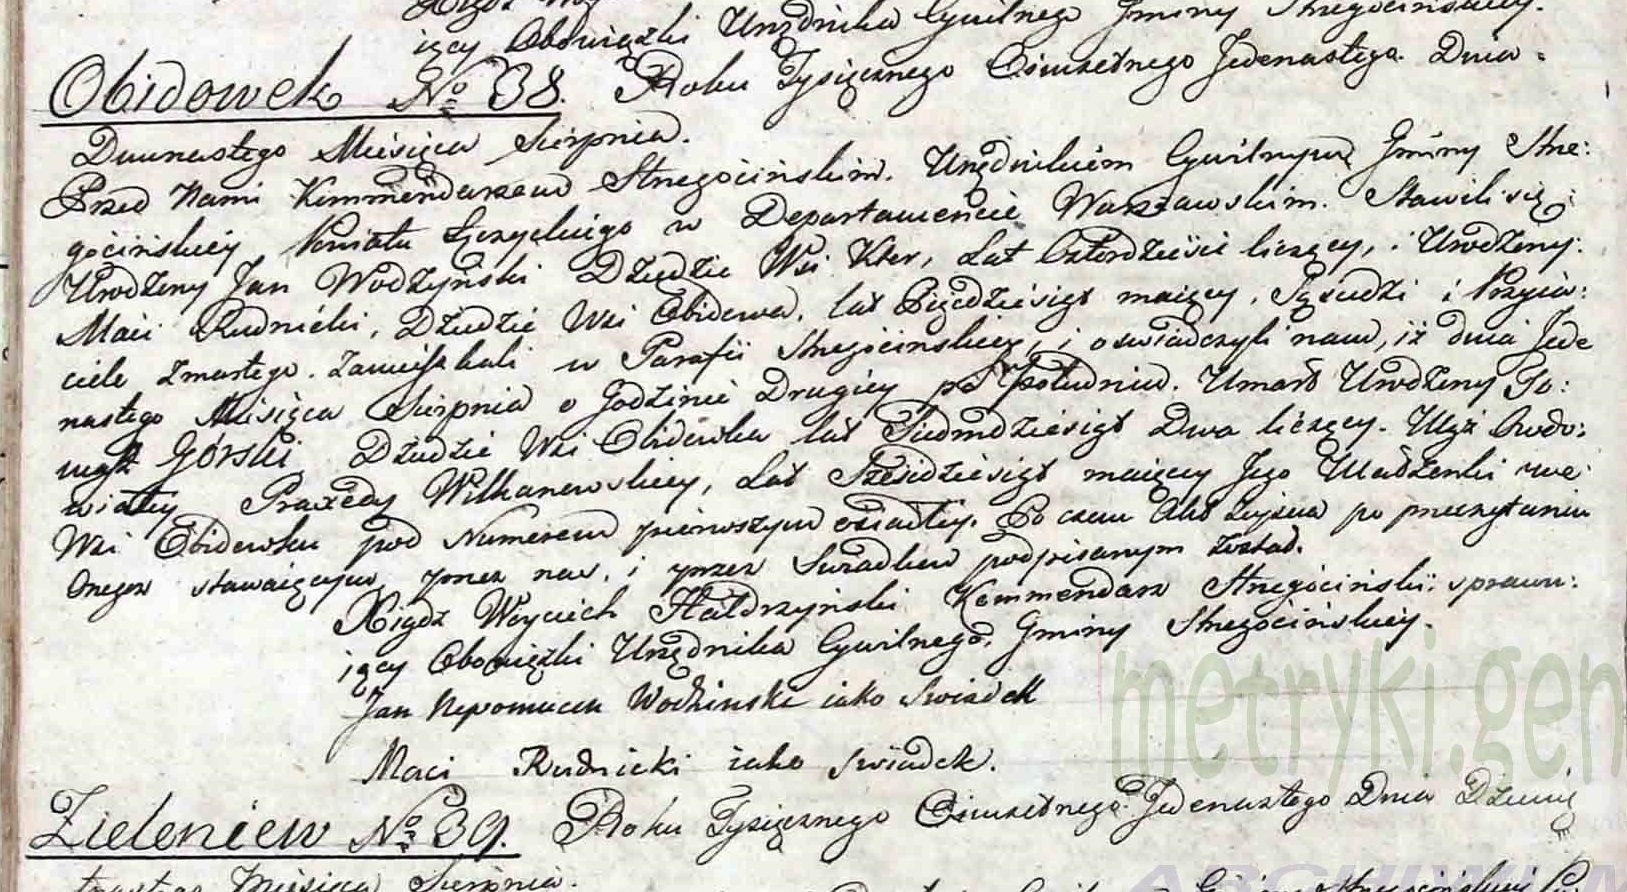 iący Obowiązki Urzędnika Cywilnego Gminy Strzegocinskiey.
Obidowek No 38. Roku Tysięcznego Ośmsetnego Jedenastego. Dnia
Dwunastego Miesięca Sierpnia.
Przed Nami Kommendarzem Strzegocińskim. Urzędnikiem Cywilnym Gminy Strze:
gocińskiey Powiatu Łęczyckiego w Departamencie Warszawskim. Stawili się
Urodzony Jan Wodzyński Dziedzic Wsi Kter, Lat Czterdzieści liczący, i Urodzony
Maci Rudnicki, Dziedzic Wsi Obidowa. lat Pięćdziesiąt maiący, Sąsiedzi i Przyia:
ciele zmarłego. zamieszkali w Parafii Strzegocinskiey, i oswiadczyli nam, iż dnia Jede
nastego Misiąca Sierpnia o Godzinie Drugiey po Południu. Umarł Urodzony To:
masz Górski Dziedzic Wsi Obidowka lat Siedmdziesiąt Dwa liczący. Mąż Urodo:
witey Praxedy Wilkanowskiey, Lat Sześćdziesiąt maiącey Jego Małżonki we
Wsi Obidowku pod Numerem pierwszym osiadłey. Po czem Akt ninieyszy po przeczytaniu
onego stawaiącym, przez nas, i przez Swiadkow podpisanym został.
Xiądz Woyciech Kommendarz Strzegociński, sprawu:
iący Obowiązki Urzędnika Cywilnego, Gminy Strzegocińskiey.
Jan Nepomucen Wodzinski iako Swiadek
Maci Rudnicki iako swiadek.
Zieleniew No 39. Roku Tysięcznego Ośmsetnego Jedenastego Dnia
Miesiąca Sierpnia.
metryki.gen